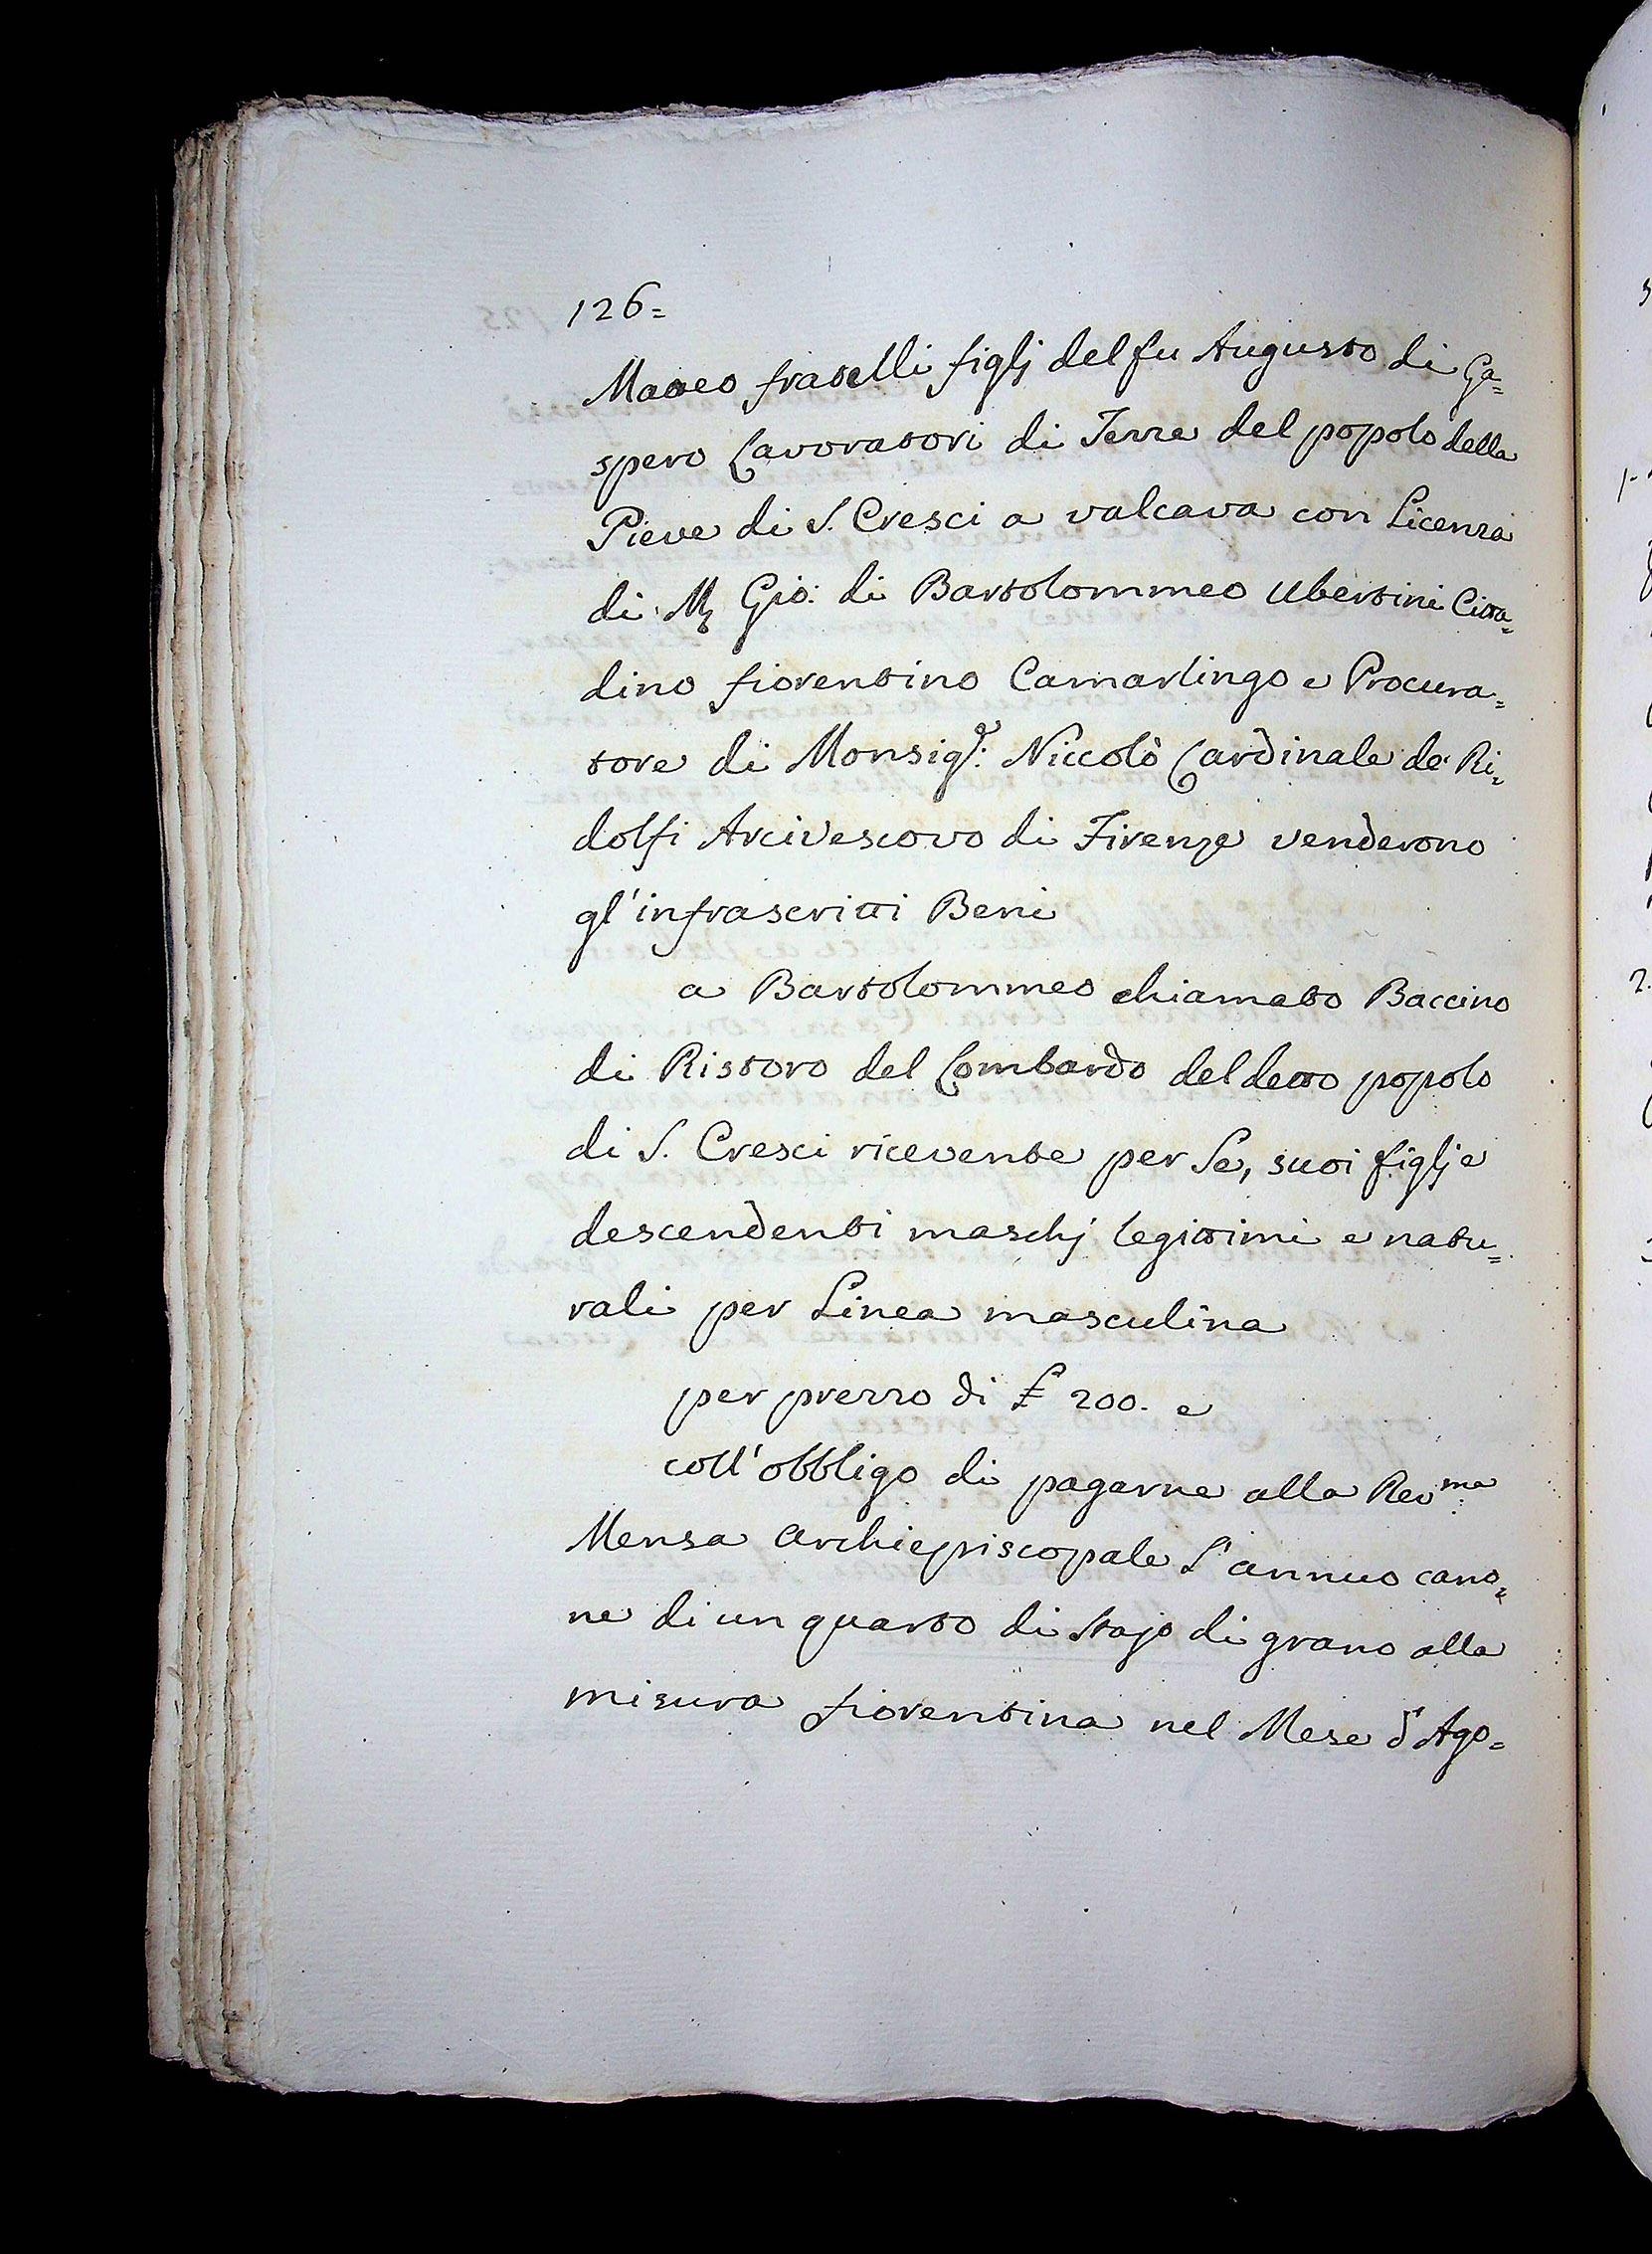 126=
Matteo fratelli figlj del fu Augusto di Ga=
spero Lavoratori di Terre del popolo della
Pieve di S. Cresci a valcava con Licenza
di M. Gio: di Bartolommeo Ubertini Citta=
dino fiorentino Camarlingo e Procura=
tore di Monsigr: Niccolò Cardinale de' Ri=
dolfi Arcivescovo di Firenze venderono
gl'infrascritti Beni
a Bartolommeo chiamato Baccino
di Ristoro del Lombardo del detto popolo
di S. Cresci ricevente per Se, suoi figlj e
descendenti maschj legittimi e natu=
rali per Linea masculina
per prezzo di £ 200. e
coll'obbligo di pagarne alla Revma:
Mensa Archiepiscopale L'annuo cano=
ne di un quarto di stajo di grano alla
misura fiorentina nel Mese d'Ago=